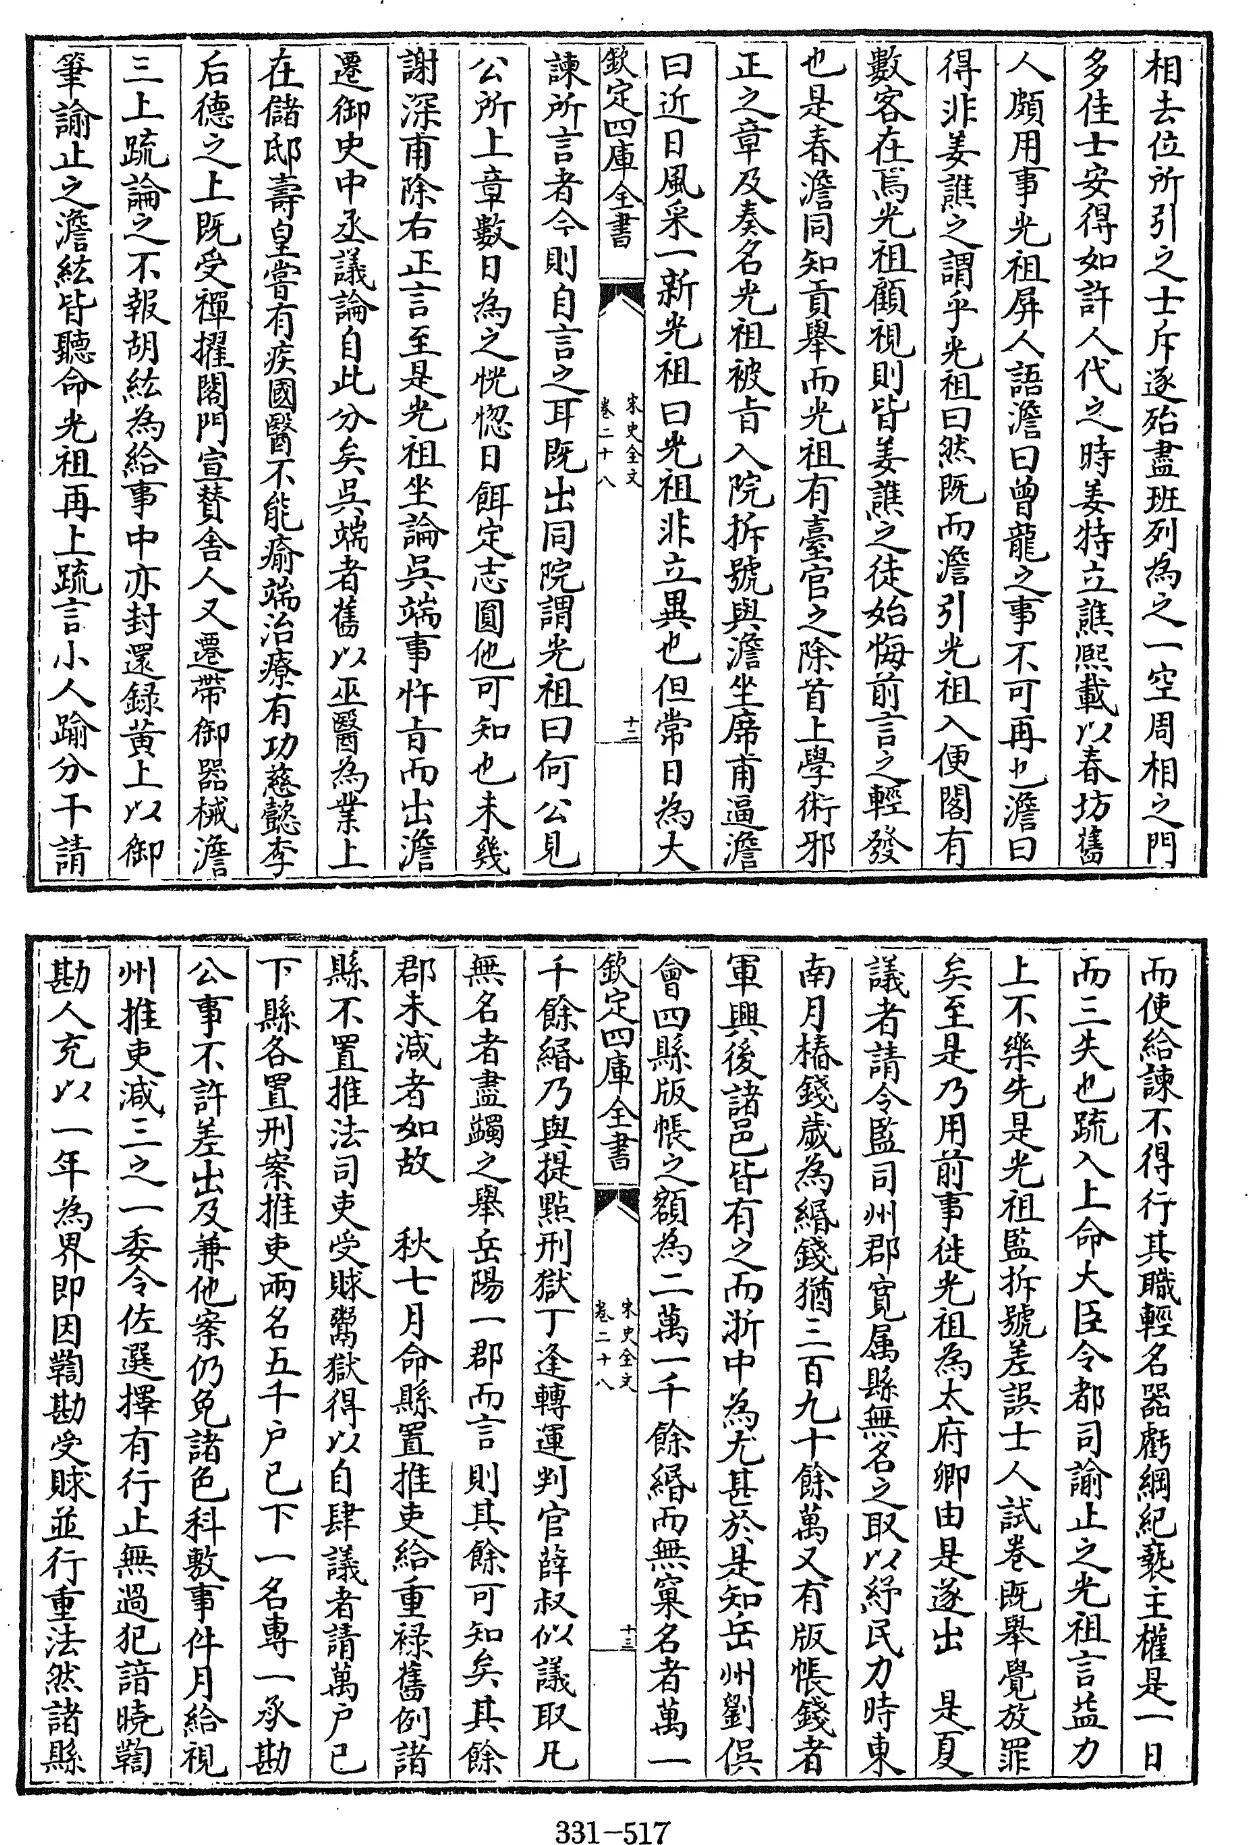 相去位所引之士斥逐殆盡班列為之一空周相之門
多佳士安得如許人代之時姜特立譙熙載以春坊舊
人頗用事光祖屏人語澹曰曾龍之事不可再也澹曰
得非姜譙之謂乎光祖曰然既而澹引光祖入便閣有
數客在焉光祖顧視則皆姜譙之徒始悔前言之輕發
也是春澹同知貢舉而光祖有臺官之除首上學術邪
正之章及奏名光祖被㫖入院拆號與澹坐席甫逼澹
曰近日風采一新光祖曰光祖非立異也但常日為大
欽定四庫全書
宋史全文
卷二十八
十二
諫所言者今則自言之耳既出同院謂光祖曰何公見
公所上章數日為之恍惚日餌定志圓他可知也未幾
謝深甫除右正言至是光祖坐論吳端事忤㫖而出澹
遷御史中丞議論自此分矣吳端者舊以巫醫為業上
在儲邸壽皇嘗有疾國醫不能瘉端治療有功慈懿李
后德之上既受禪擢閤門宣贊舍人又遷帶御器械澹
三上疏論之不報胡紘為給事中亦封還録黄上以御
筆諭止之澹紘皆聽命光祖再上疏言小人踰分干請
而使給諫不得行其職輕名器虧綱紀褻主權是一日
而三失也疏入上命大臣令都司諭止之光祖言益力
上不樂先是光祖監拆號差誤士人試卷既舉覺放罪
矣至是乃用前事徙光祖為太府卿由是遂出　是夏
議者請令監司州郡寛属縣無名之取以紓民力時東
南月樁錢歲為緡錢猶三百九十餘萬又有版帳錢者
軍興後諸邑皆有之而浙中為尤甚於是知岳州劉俁
會四縣版帳之額為二萬一千餘緡而無窠名者萬一
欽定四庫全書
宋史全文
卷二十八
十三
千餘緡乃與提點刑獄丁逢轉運判官薛叔似議取凡
無名者盡蠲之舉岳陽一郡而言則其餘可知矣其餘
郡未減者如故　秋七月命縣置推吏給重禄舊例諸
縣不置推法司吏受賕鬻獄得以自肆議者請萬户已
下縣各置刑案推吏兩名五千户已下一名專一承勘
公事不許差出及兼他案仍免諸色科敷事件月給視
州推吏減三之一委令佐選擇有行止無過犯諳曉鞫
勘人充以一年為界即因鞫勘受賕並行重法然諸縣
331-517